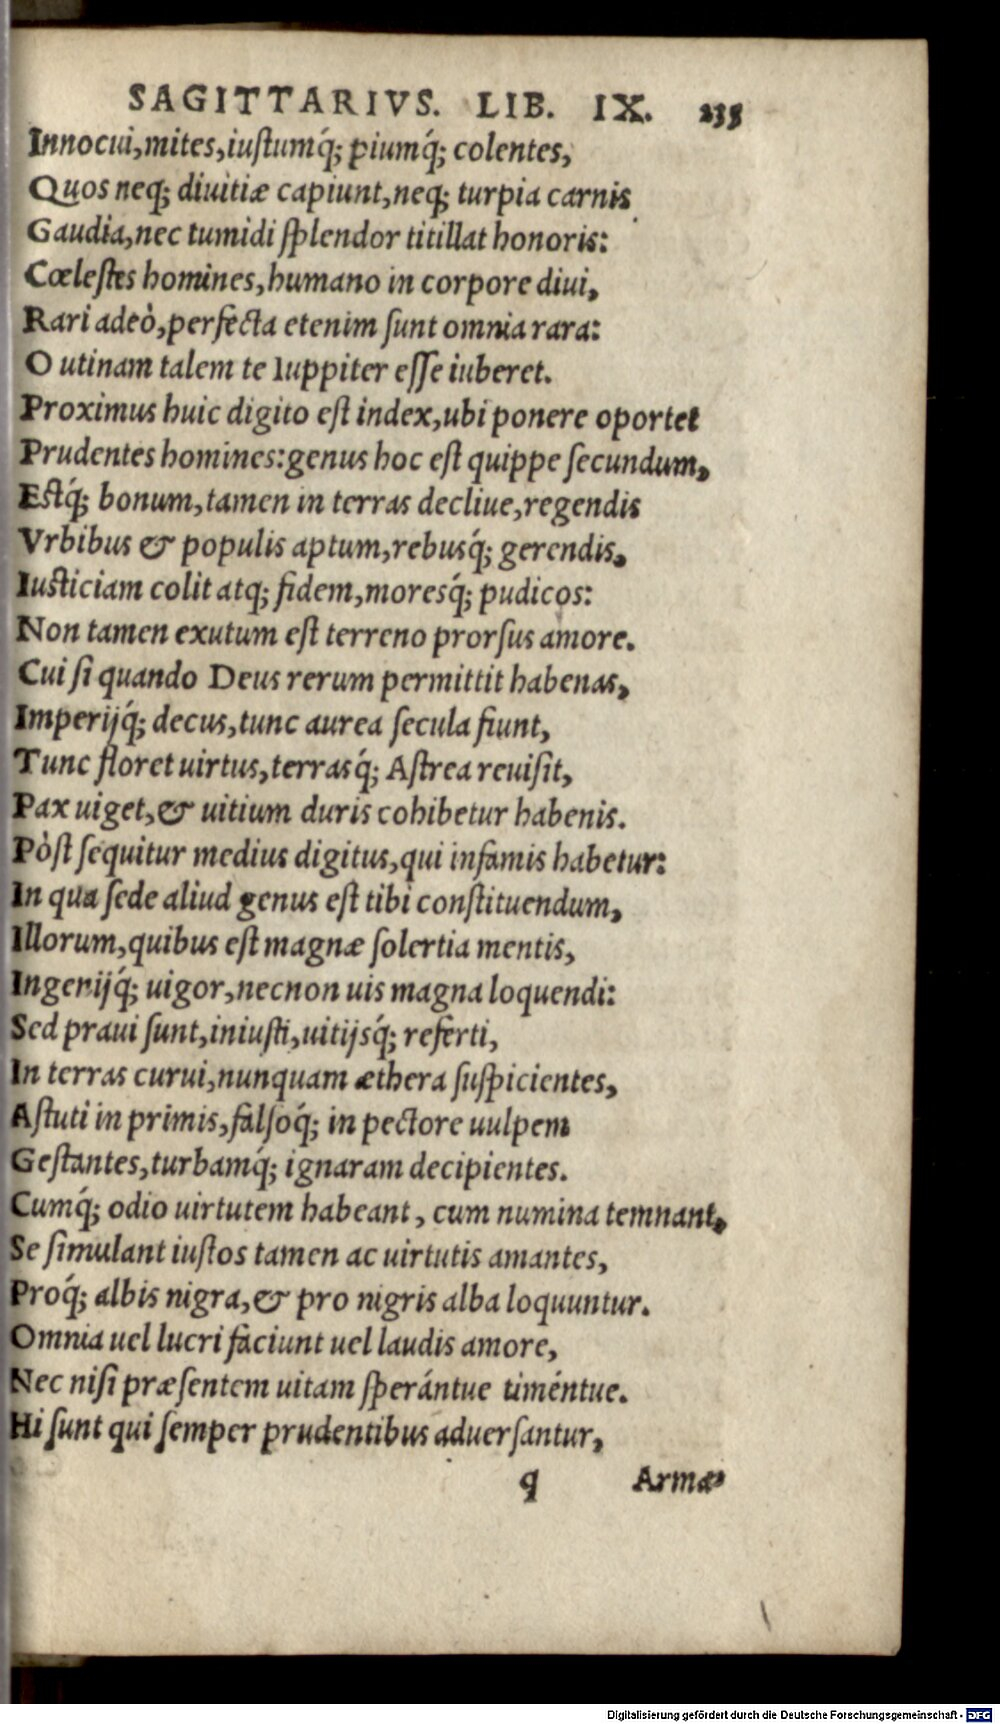 SAGITTARIVS. LIB. IX. 235
Innocui, mites, iuſtumq́; piumq́; colentes,
Quos neq; diuitiæ capiunt, neq; turpia carnis
Gaudia, nec tumidi ſplendor titillat honoris:
Cœleſtes homines, humano in corpore diui,
Rari adeò, perfecta etenim ſunt omnia rara:
O utinam talem te Iuppiter eſſe iuberet.
Proximus huic digito eſt index, ubi ponere oportet
Prudentes homines: genus hoc eſt quippe ſecundum,
Eſtq́; bonum, tamen in terras decliue, regendis
Vrbibus & populis aptum, rebusq́; gerendis,
Iuſticiam colit atq; fidem, moresq́; pudicos:
Non tamen exutum eſt terreno prorſus amore.
Cui ſi quando Deus rerum permittit habenas,
Imperijq́; decus, tunc aurea ſecula fiunt,
Tunc floret uirtus, terrasq́; Aſtrea reuiſit,
Pax uiget, & uitium duris cohibetur habenis.
Pòſt ſequitur medius digitus, qui infamis habetur:
In qua ſede aliud genus eſt tibi conſtituendum,
Illorum, quibus eſt magnæ ſolertia mentis,
Ingenijq́; uigor, necnon uis magna loquendi:
Sed praui ſunt, iniuſti, uitijsq́; referti,
In terras curui, nunquam æthera ſuſpicientes,
Aſtuti in primis, falſoq́; in pectore uulpem
Geſtantes, turbamq́; ignaram decipientes.
Cumq́; odio uirtutem habeant, cum numina temnant,
Se ſimulant iuſtos tamen ac uirtutis amantes,
Proq́; albis nigra, & pro nigris alba loquuntur.
Omnia uel lucri faciunt uel laudis amore,
Nec niſi præſentem uitam ſperántue timéntue.
Hi ſunt qui ſemper prudentibus aduerſantur,
q Armæ
Digitalisierung gefördert durch die Deutsche Forschungsgemeinschaft - DFG